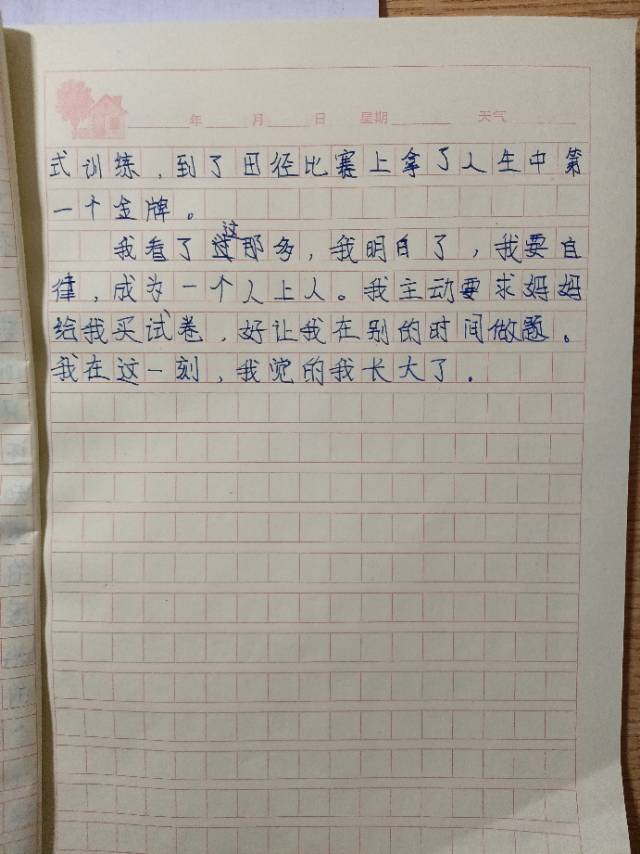 年 月 日 星期 天气
式训练,到了田径比赛上拿了人生中第
一个金牌。
我看了这那多,我明白了,我要自
律,成为一个人上人。我主动要求妈妈
给我买试卷,好让我在别的时间做题。
我在这一刻,我觉的我长大了.